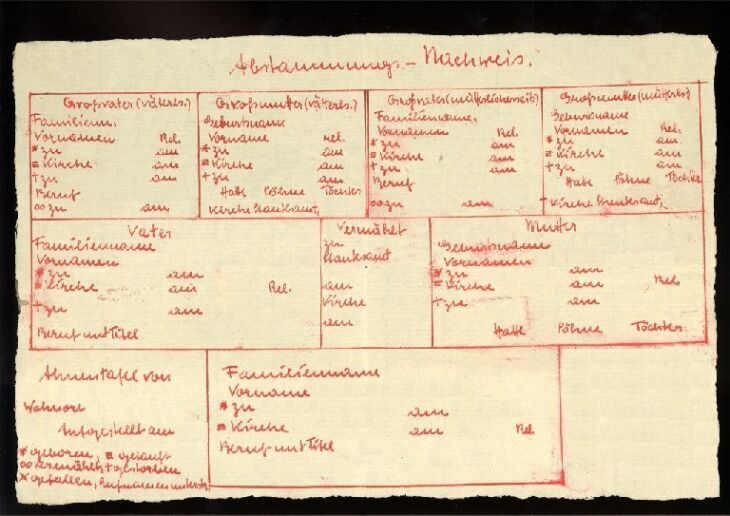 Abstammungs-Nachweis.
Großvater (väterls.)
Familienn.
Vornamen Rel.
* zu am
= Kirche am
+ zu am
Beruf
∞ zu am
Großmutter (väterls.)
Geburtsname
Vorname rel.
* zu am
= Kirche am
+ zu am
Hatte Söhne Töchter
Kirche Standesamt,
Großvater (mütterlicherseits)
Familienname.
Vornamen Rel.
* zu am
= Kirche am
+ zu am
Beruf
∞ zu am
Großmutter (mütterls)
Geburtsname
Vornamen Rel.
* zu am
= Kirche am
+ zu am
Hatte Söhne Töchter
Kirche Standesamt,
Vater
Familienname
Vornamen
* zu am
= Kirche am Rel.
+ zu am
Beruf und Titel
Vermählt
zu
Standesamt
am
Kirche
am
Mutter
Geburtsname
Vornamen
* zu am
= Kirche am Rel.
+ zu am
Hatte Söhne Töchter
Ahnentafel von
Wohnort
Aufgestellt am
* geboren, = getauft
∞ vermählt, + gestorben
× gefallen,
Familienname
Vorname
* zu am
= Kirche am Rel.
Beruf und Titel